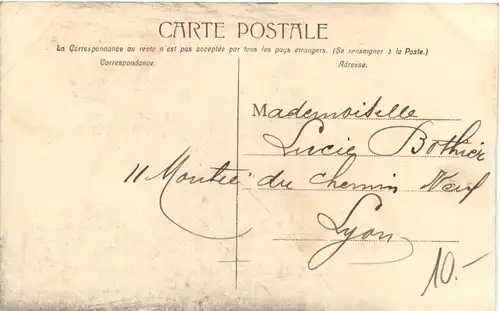 CARTE POSTALE
La Correspondance au recto n'est pas acceptée par tous les pays étrangers. (Se renseigner à la Poste.)
Correspondance.
Adresse.
Mademoiselle
Lucie Bothier
11 Montée du chemin Neuf
Lyon
10.-